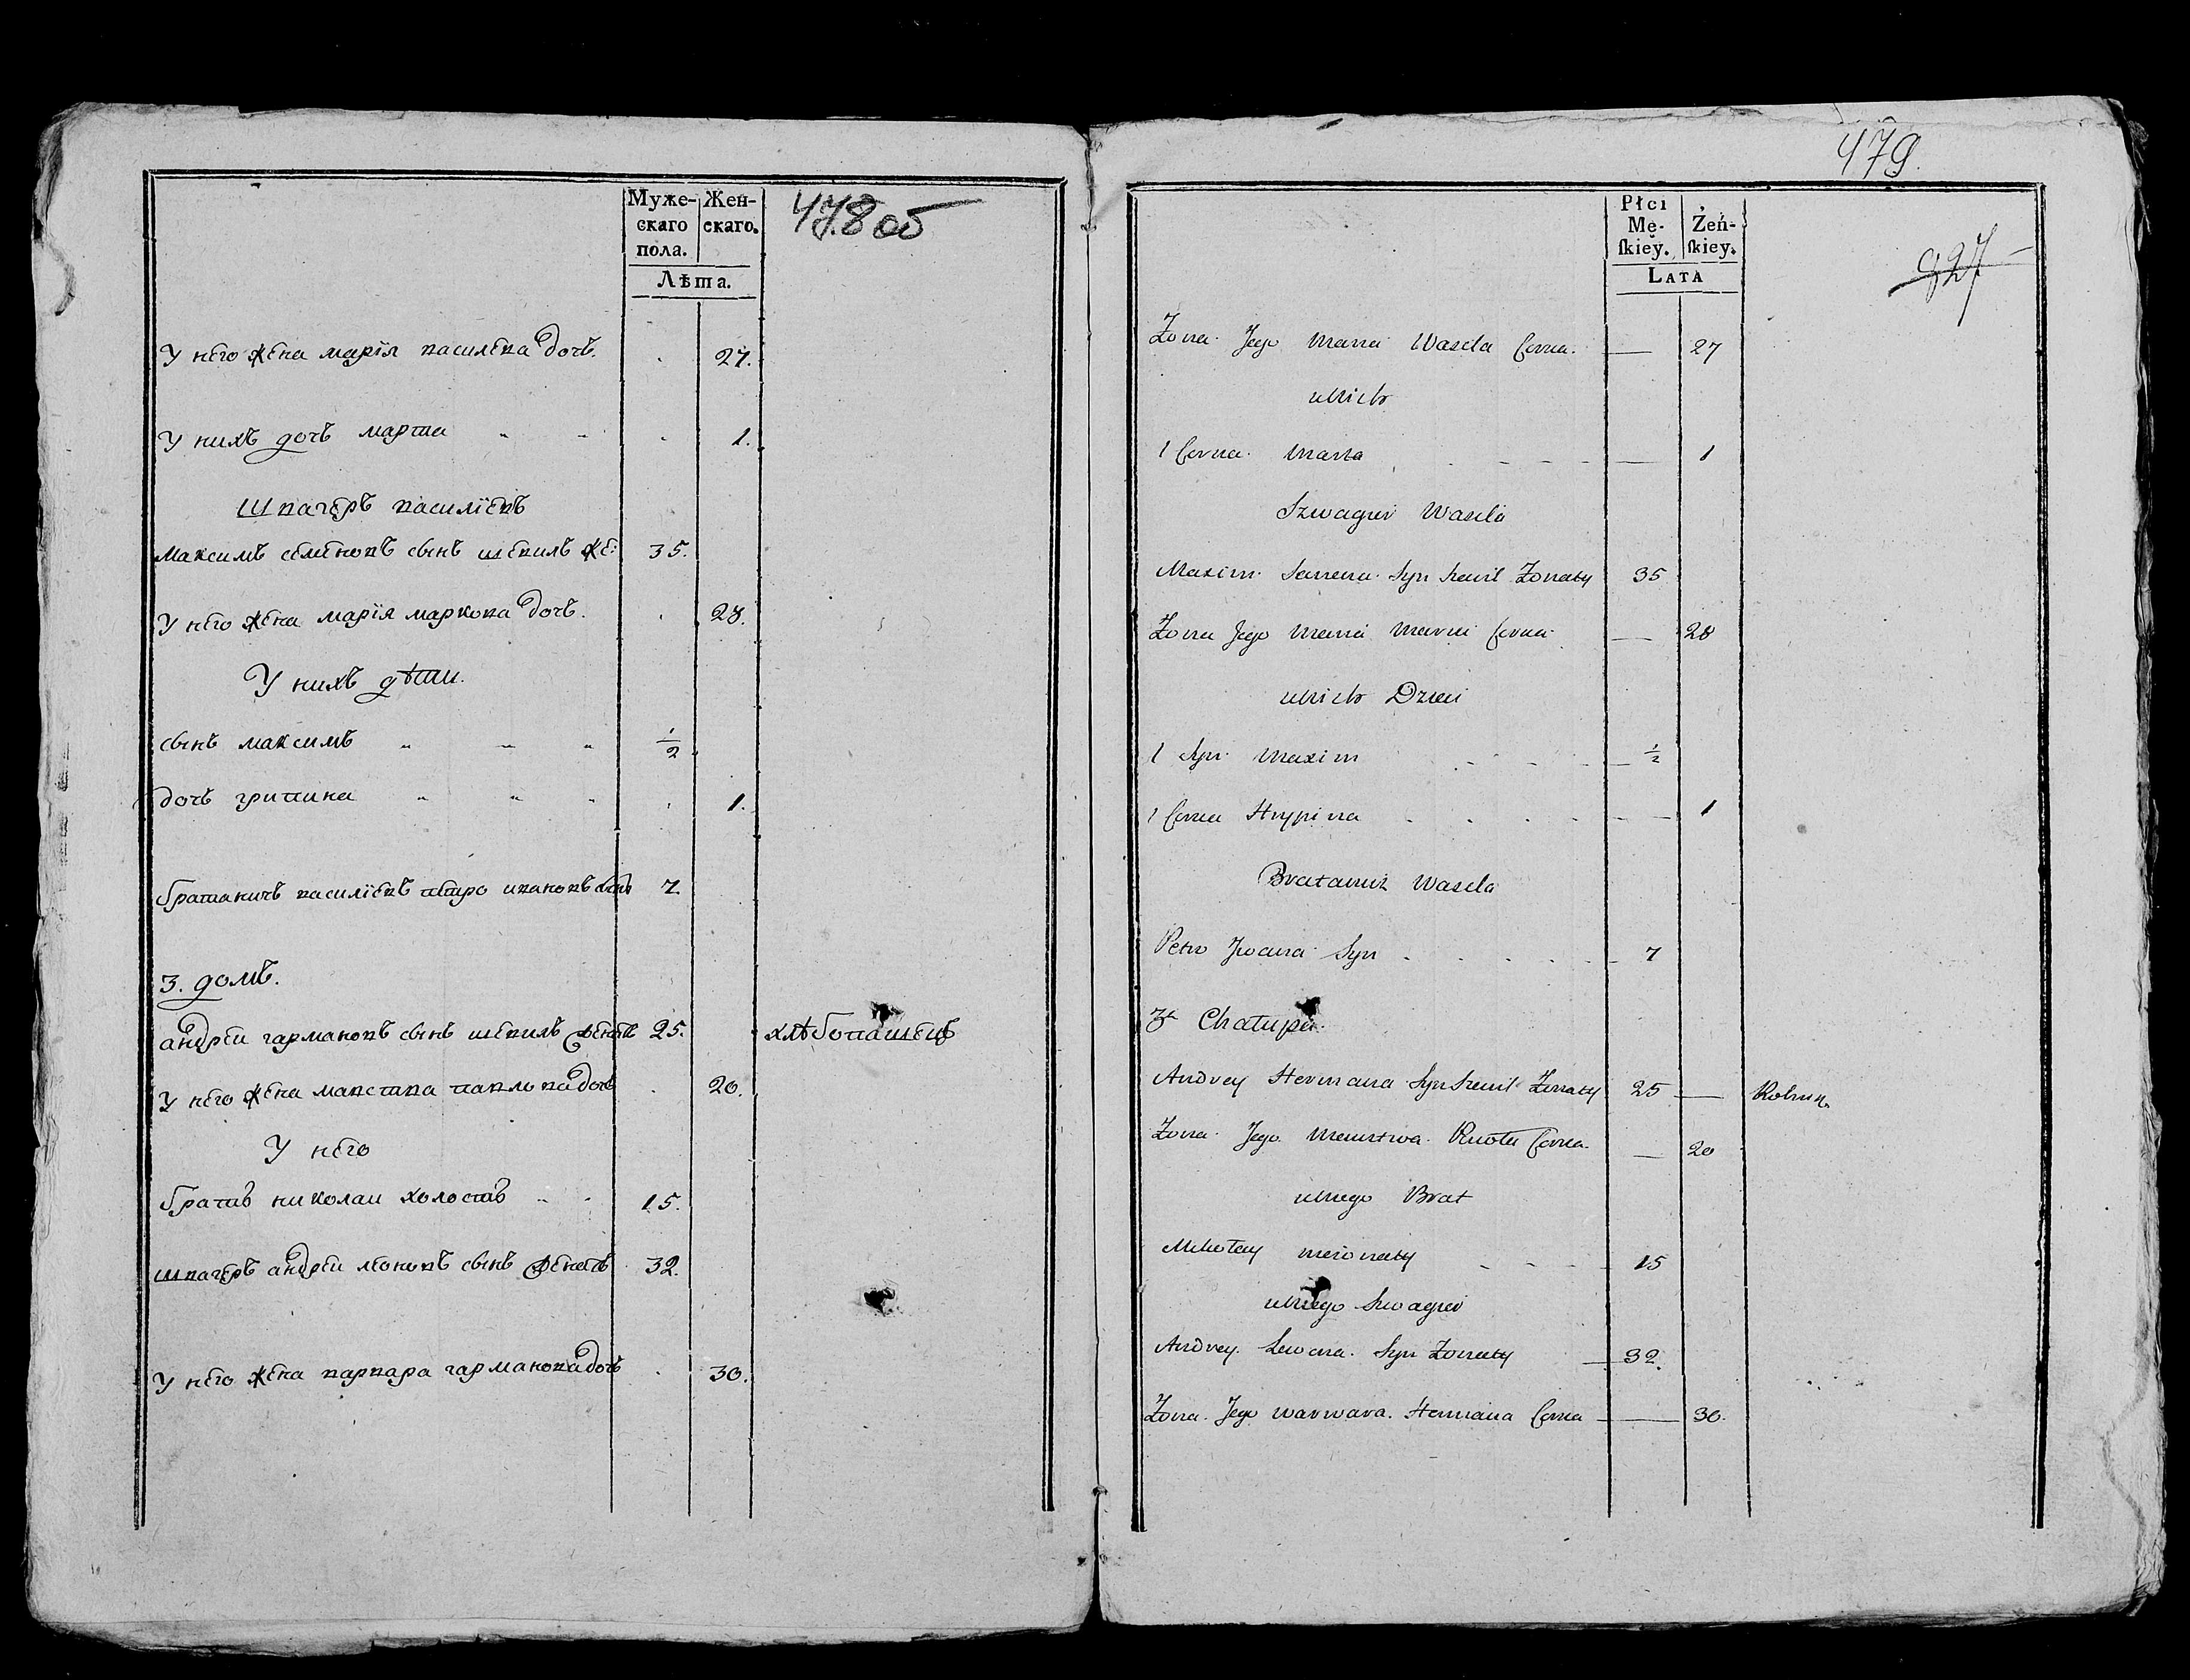 Муже-
скаго
пола.
Жен-
скаго.
Лѣта.
478 об
У него жена марія василева дочъ. 27.
У нихъ дочъ марта 1.
Швагеръ василіевъ
Максимъ семеновъ сынъ шевилъ же: 35.
У него жена марія маркова дочъ. 28.
У нихъ дѣти.
сынъ максимъ ½
дочъ грипина 1.
братаничъ василіевъ петро ивановъ сынъ 7.
3. домъ.
андрей гармановъ сынъ шевилъ женатъ 25. хлѣбопашецъ
У него жена мавства павлова дочъ 20.
У него
братъ николай холостъ 15.
швагеръ андрей леоновъ сынъ женатъ 32.
У него жена варвара гарманова дочъ 30.
479.
Płci
Mę-
skiey.
Żeń-
skiey.
LATA
927
Zona Jego Maria Wasila Corna. — 27
uNich
1 Corna. Marta — 1
Szwagier Wasila
Maxim Semena Syn Szewil Zonaty 35
Zona Jego Maria Marcu Corna — 28
uNich Dzieci
1 Syn Maxim ½
1 Corna Hrypina — 1
Bratanicz Wasila
Petro Jwana Syn 7
3a Chałupa.
Andrey Hermana Syn Szewil Zonaty 25 — Rolnik
Zona Jego Mawstwa Corna — 20
uNiego Brat
Mikołay niezonaty 15
uNiego Szwagier
Andrey Lewona Syn Zonaty 32.
Zona Jego Warwara. Hermana Corna — 30.